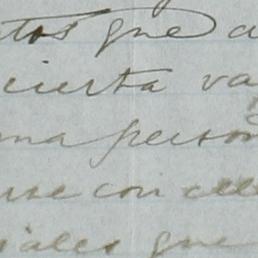 tos que a
cierta va
ma person
rse con ell
iales que